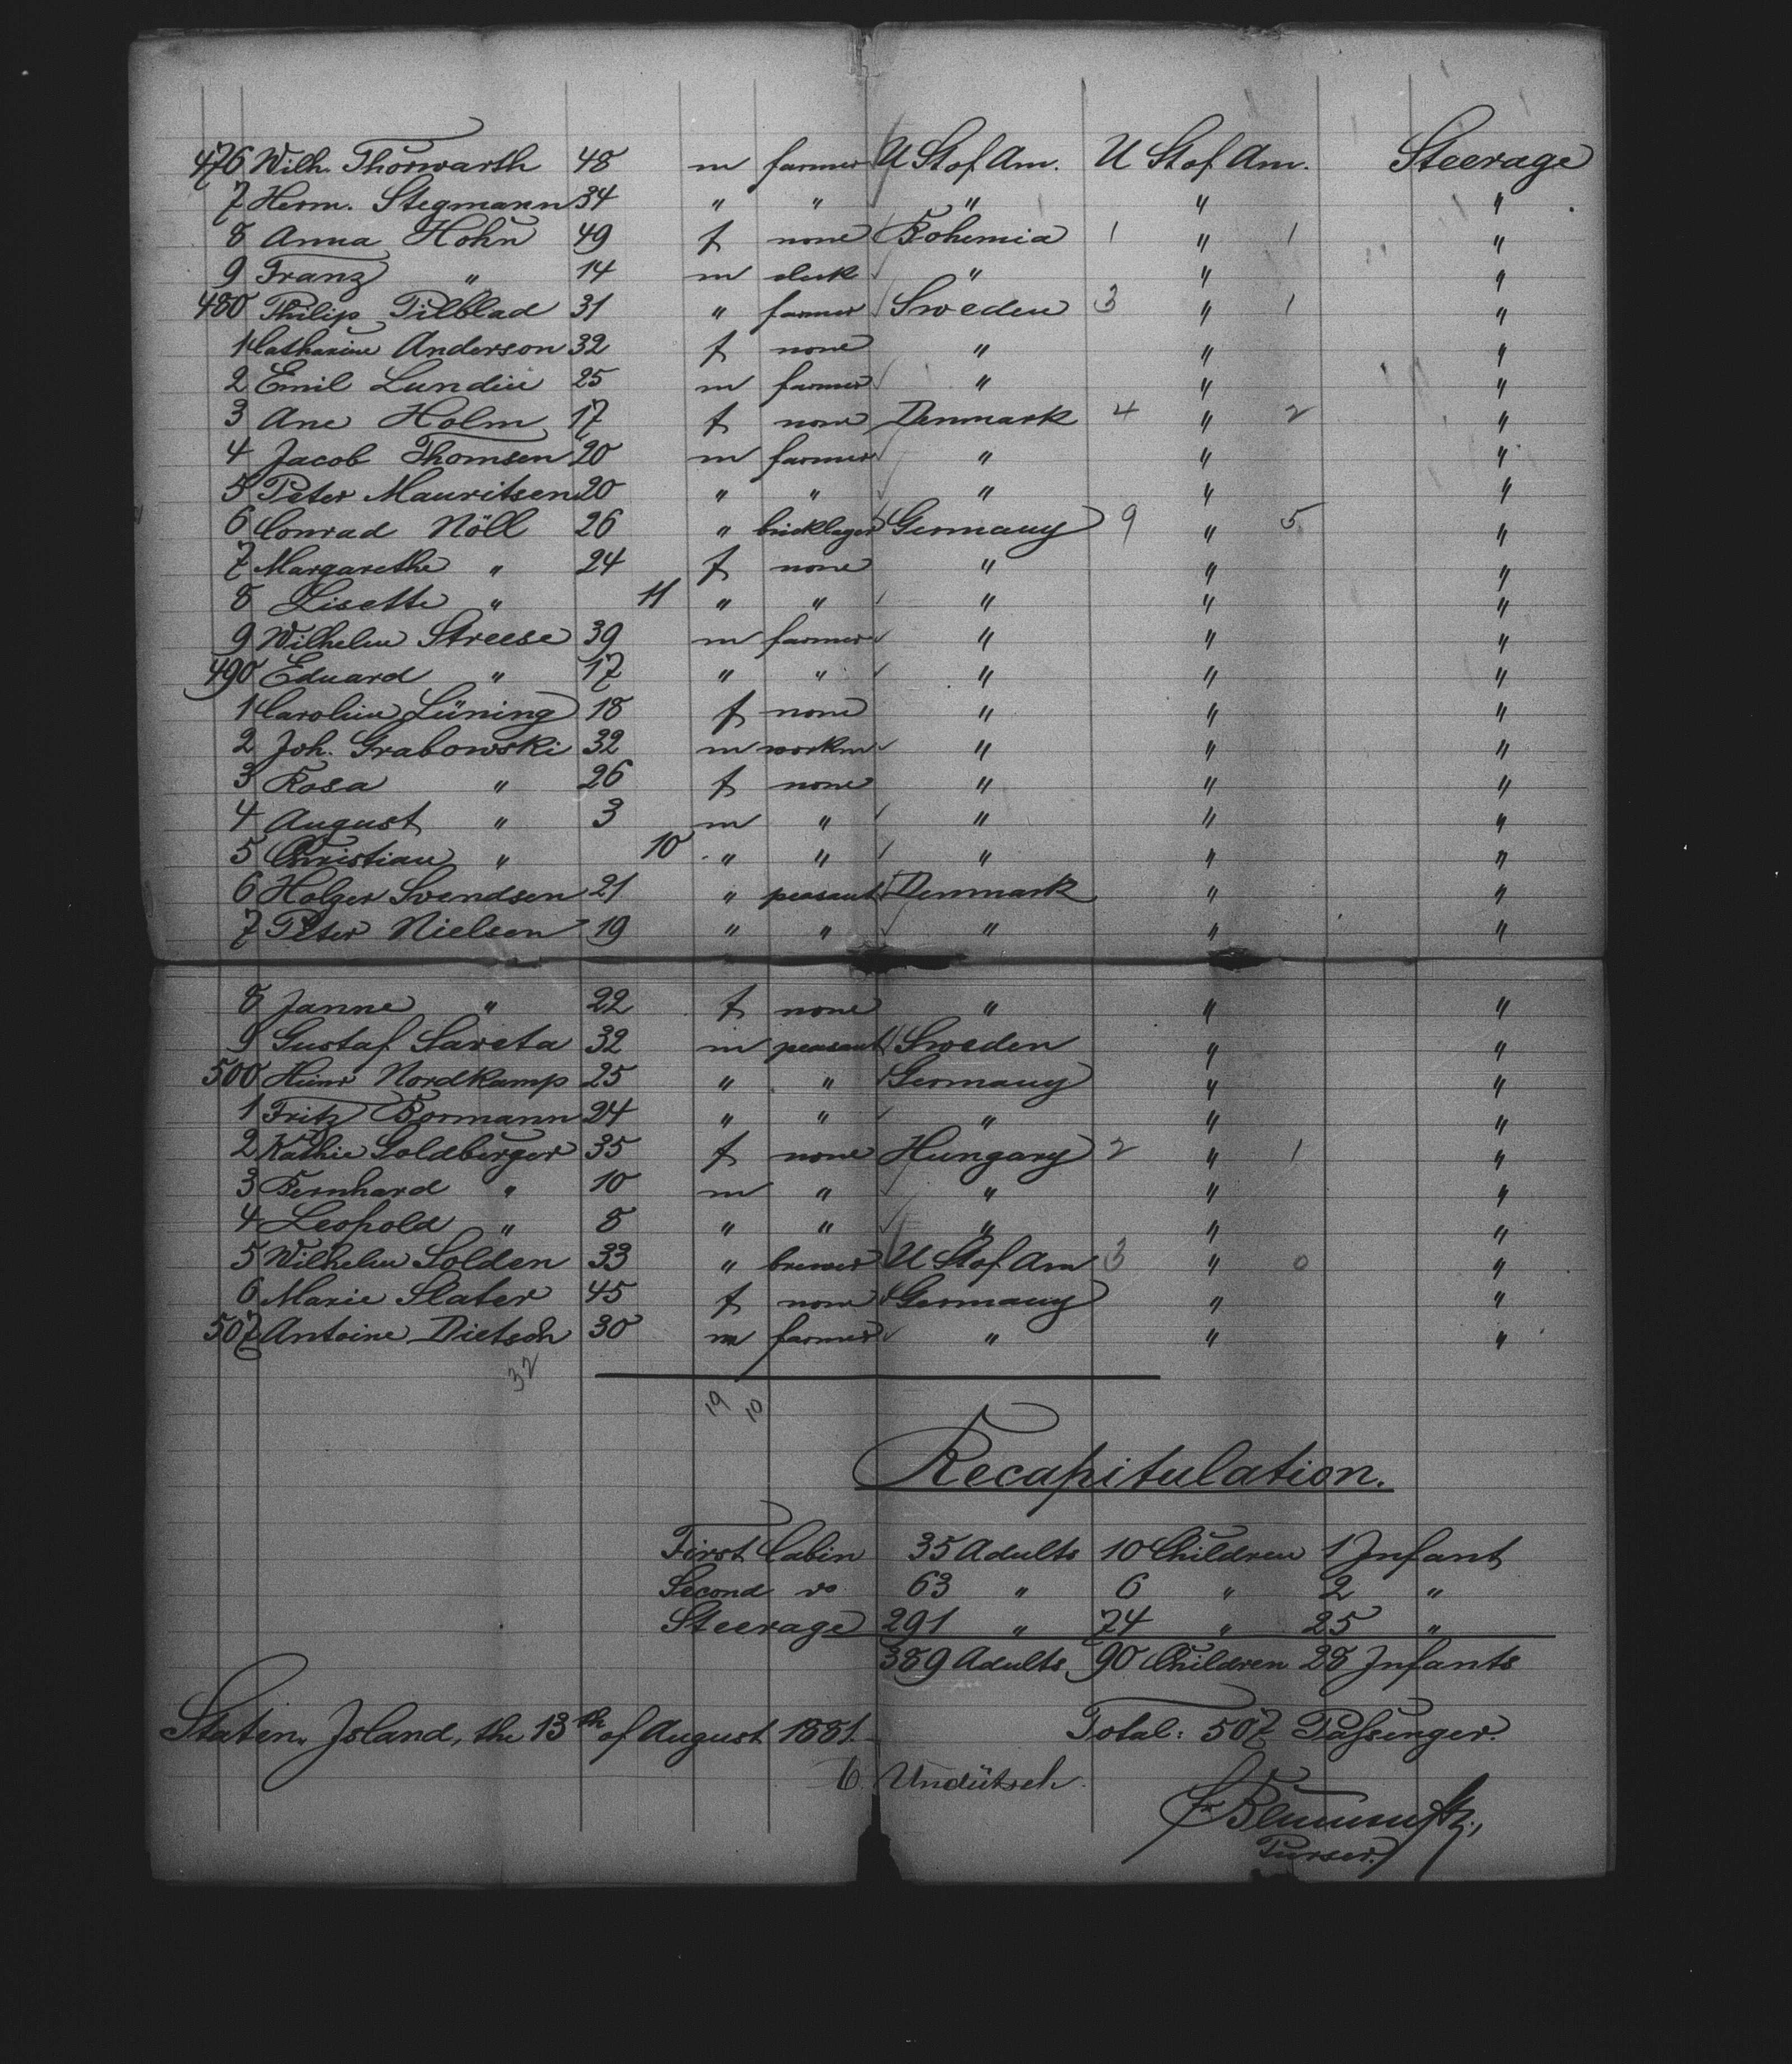 476 Wilh. Thorwarth 48 m farmer U St of Am. U St of Am. Steerage
7 Herm. Stegmann 34 " " " " "
8 Anna Hohn 49 f none Bohemia 1 " 1 "
9 Franz " 14 m clerk " " "
480 Philip Pilblad 31 " farmer Sweden 3 " 1 "
1 Catharine Anderson 32 f none " " "
2 Emil Lundin 25 m farmer " " "
3 Ane Holm 17 f none Denmark 4 " 2 "
4 Jacob Thomsen 20 m farmer " " "
5 Peter Mauritsen 20 " " " " "
6 Conrad Nöll 26 " bricklayer Germany 9 " 5 "
7 Margarethe " 24 f none " " "
8 Lisette " 11 " " " " "
9 Wilhelm Streese 39 m farmer " " "
490 Eduard " 17 " " " " "
1 Caroline Lüning 18 f none " " "
2 Joh. Grabowski 32 m workm " " "
3 Rosa " 26 f none " " "
4 August " 3 m " " " "
5 Christian " 10 " " " " "
6 Holger Svendsen 21 " peasant Denmark " "
7 Peter Nielsen 19 " " " " "
8 Janne " 22 f none " " "
9 Gustaf Sareta 32 m peasant Sweden " "
500 Heinr Nordkamp 25 " " Germany " "
1 Fritz Bormann 24 " " " " "
2 Kathie Goldberger 35 f none Hungary 2 " 1 "
3 Bernhard " 10 m " " " "
4 Leopold " 8 " " " " "
5 Wilhelm Solden 33 " brewer U St of Am 3 " 0 "
6 Marie Slater 45 f none Germany " "
507 Antoine Dietsch 30 m farmer " " "
32
19 10
Recapitulation.
First Cabin 35 Adults 10 Children 1 Infant
Second do 63 " 6 " 2 "
Steerage 291 " 74 " 25 "
389 Adults 90 Children 28 Infants
Staten Island, the 13th of August 1881. Total: 507 Passenger.
Undütsch.
Purser.